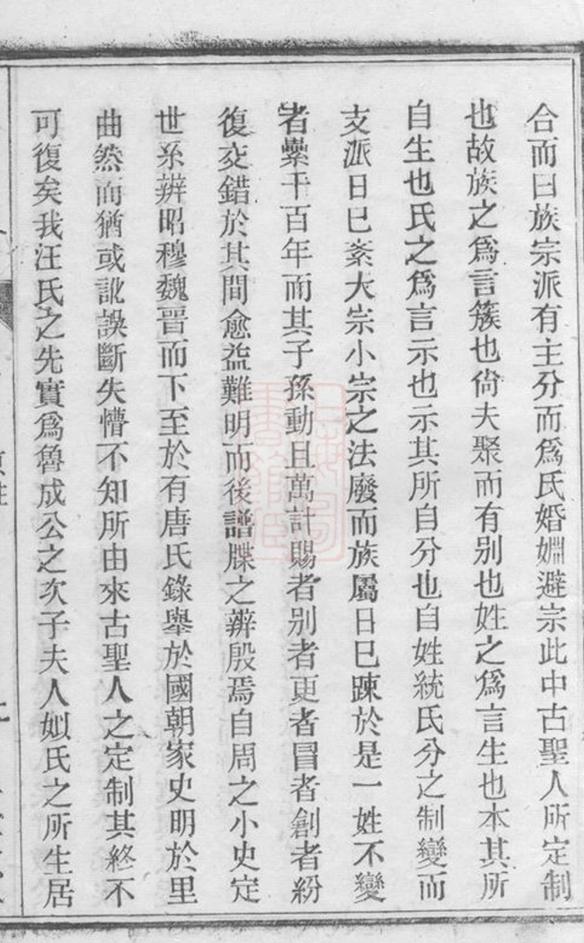 合而曰族宗派有主分而爲氏婚姻避宗此中古聖人所定制
也故族之爲言簇也尙夫聚而有别也姓之爲言生也本其所
自生也氏之爲言示也示其所自分也自姓統氏分之制變而
支派日巳紊大宗小宗之法廢而族屬日巳踈於是一姓不變
者纍千百年而其子孫動且萬計賜者别者更者冒者創者紛
復交錯於其間愈益難明而後譜牒之辨殷焉自周之小史定
世系辨昭穆魏晋而下至於有唐氏錄舉於國朝家史明於里
曲然而猶或訛誤斷失懵不知所由來古聖人之定制其終不
可復矣我汪氏之先實爲魯成公之次子夫人姒氏之所生居